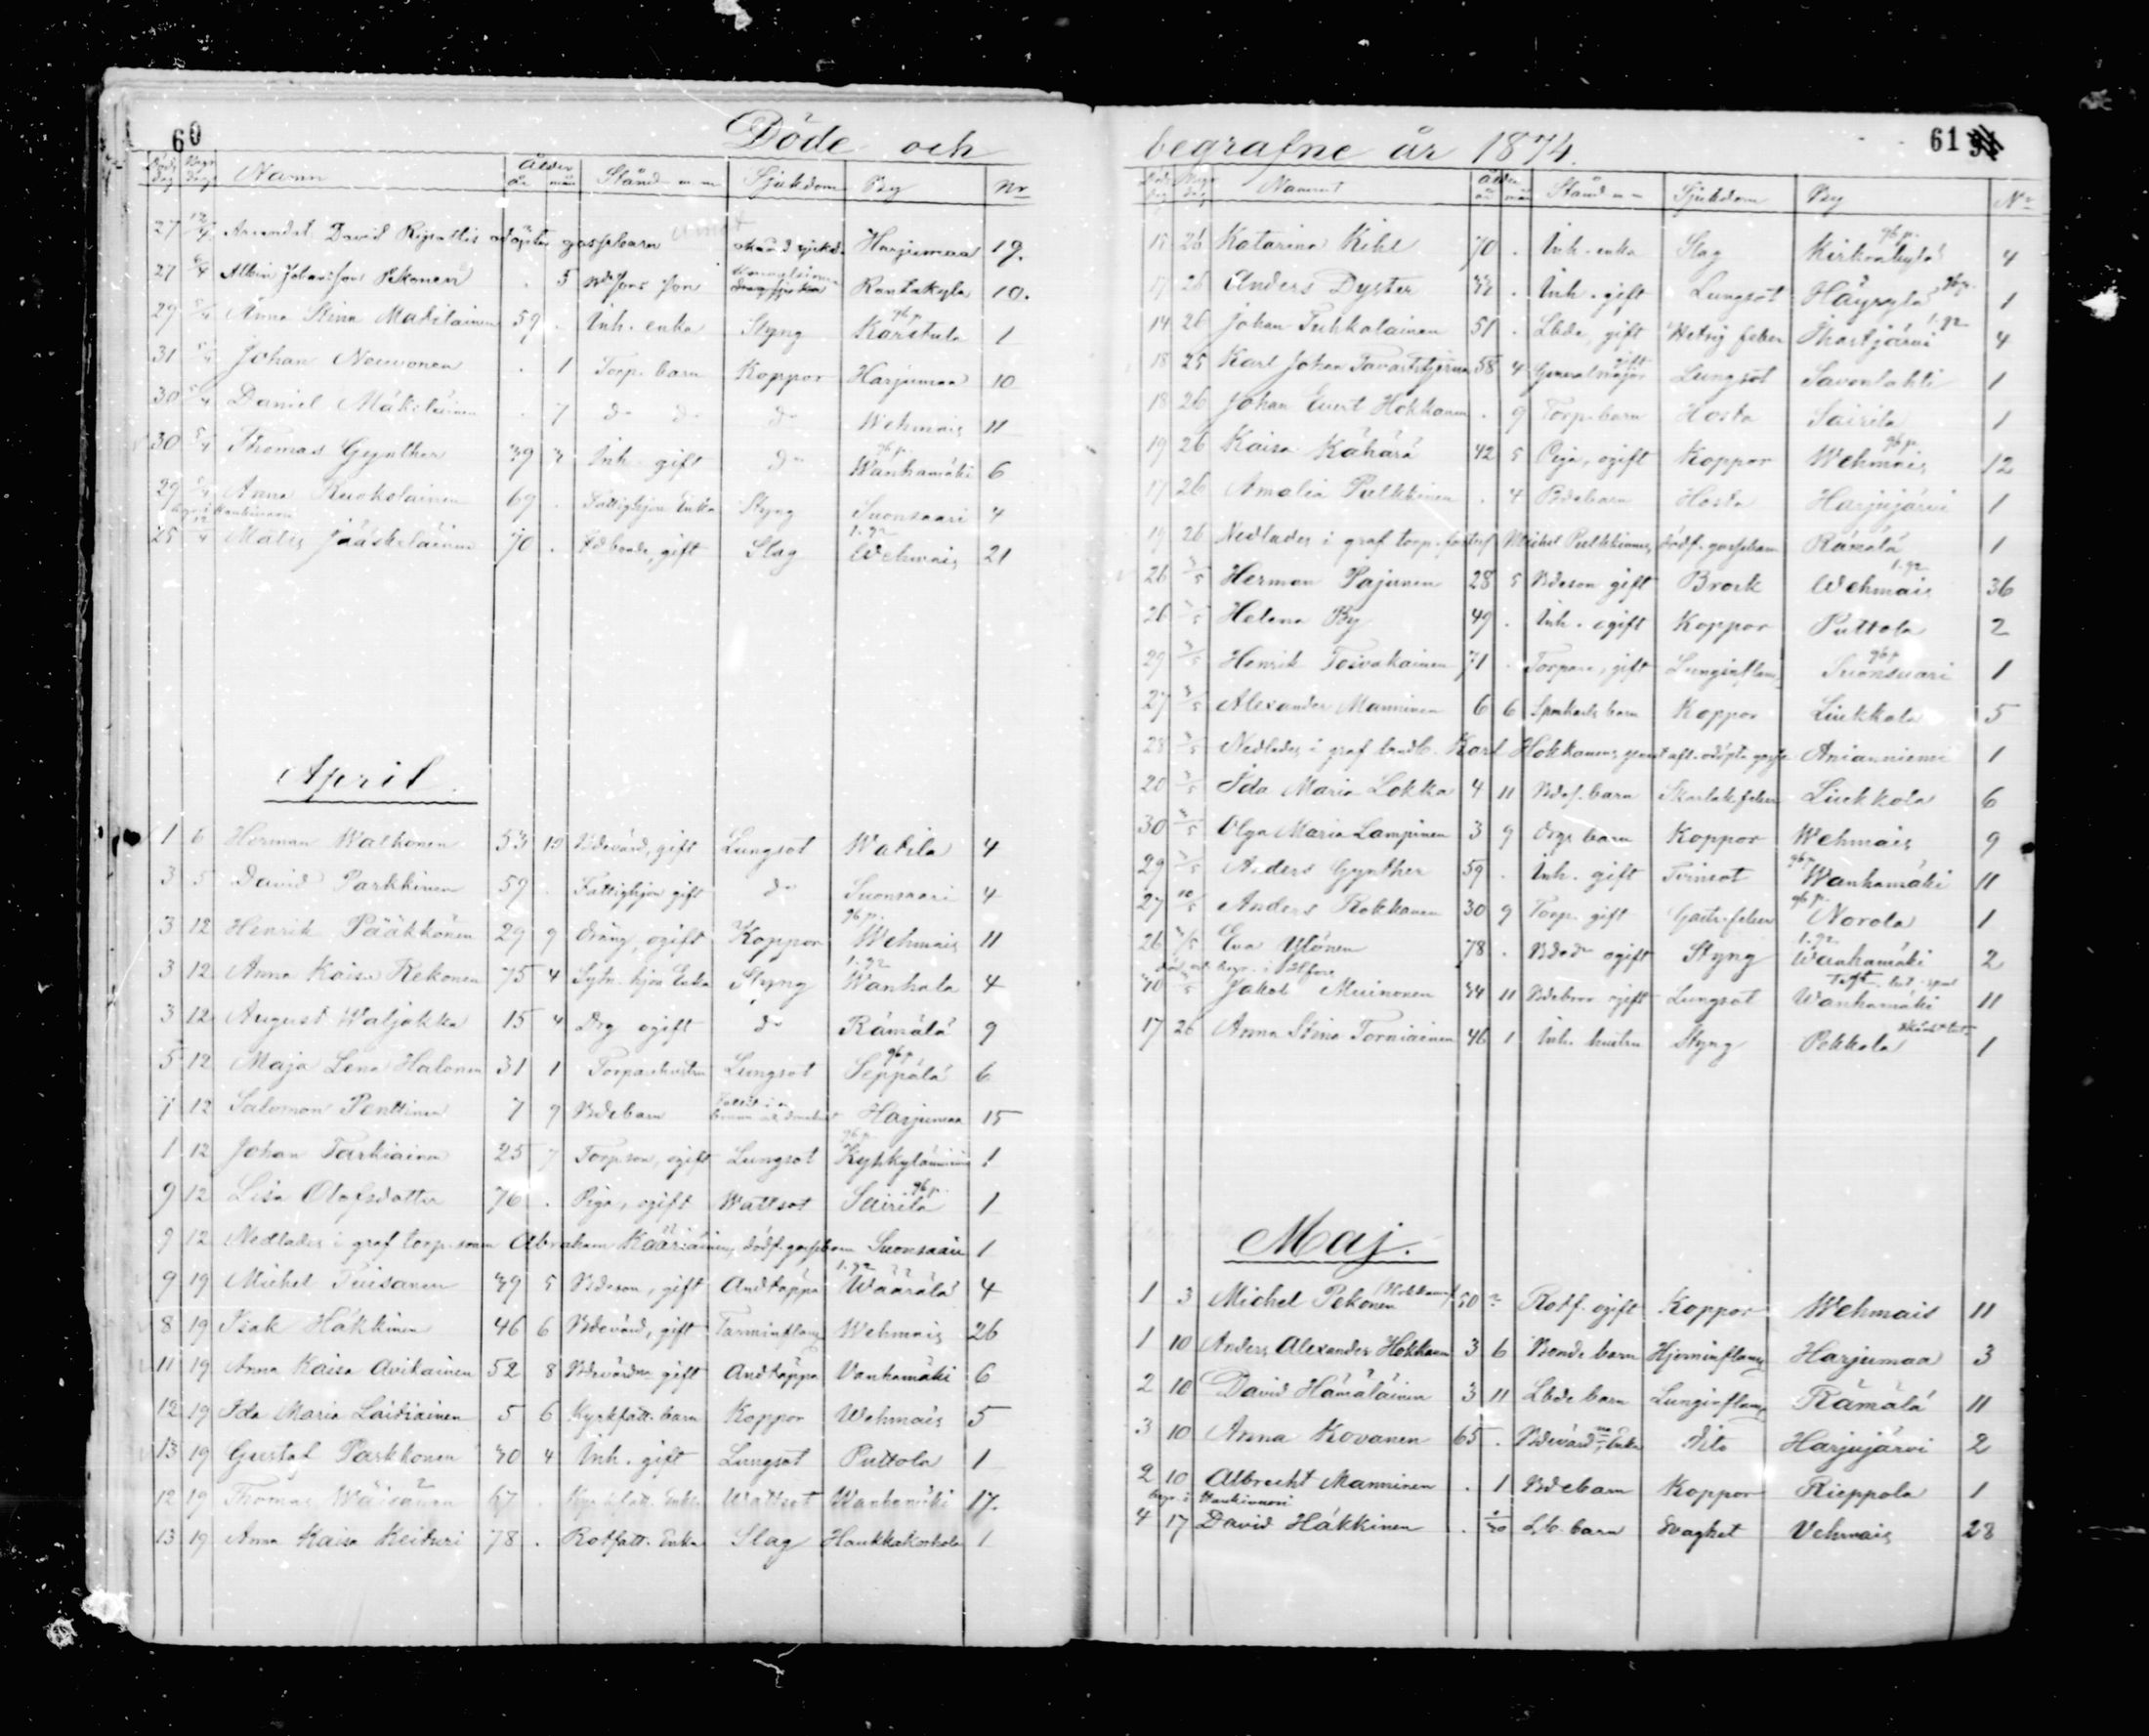 60
Döde och
Namn Ålder år mån Stånd m m Sjukdom By Nr
27 David odöpta gossebarn okänd sjukd. Harjumaa 19.
27 Albin Johansson Pekonen . 5 Rantakyla 10.
29 5/4 Anna Stina Matilainen 59 . Inh. enka Styng Karstula 1
31 5/4 Johan Neuvonen . 1 Torp. barn Koppor Harjumaa 10
30 5/4 Daniel . 7 do do do Wehmais 11
30 5/4 Thomas Gynther 39 Inh. gift do Wanhamäki 6
29 5/4 Anna Ruokolainen 69 . Fattighjon Enka Styng Suonsaari 4
25 12/4 Matts Jääskeläinen 70 . gift Slag Wehmais 21
April.
1 6 Herman Walkonen 53 10 Bdevärd, gift Lungsot Watila 4
3 5 David Parkkinen 59 . Fattighjon gift do Suonsaari 4
3 12 Henrik Pääkkönen 29 9 dräng, ogift Koppor Wehmais 11
3 12 Anna Kaisa Kekonen 75 4 Sytn. hjon Enka Styng Wanhala 4
3 12 August Waljakka 15 4 Drg ogift do Rämälä 9
5 12 Maja Lena Halonen 31 1 Torparehustru Lungsot Seppälä 6
7 12 Salomon Penttinen 7 9 Bdebarn Harjumaa 15
1 12 Johan Tarkiainen 25 7 Torpson, ogift Lungsot 1
9 12 Lisa Olofsdotter 76 . Piga, ogift Wattsot Sairila 1
9 12 Nedlades i graf torp. Abraham Kääriäinens dödf. gossebarn Suonsaari 1
9 19 Michel Puisanen 39 5 Bdeson, gift Andtäppa Wäärälä 4
8 19 Isak Häkkinen 46 6 Bdevärd, gift Tarminflam Wehmais 26
11 19 Anna Kaisa Avikainen 52 8 gift Andtäppa Vanhamäki 6
12 19 Ida Maria Laitiainen 5 6 Kyrkfatt. barn Koppor Wehmais 5
13 19 Gustaf Parkkonen 30 4 Inh. gift Lungsot Puttola 1
12 19 Thomas Wäisänen 67 . Kyrkfatt. Enkl. Wattsot Wanhamäki 17.
13 19 Anna Kaisa Keituri 78 . Rotfatt. Enka Slag Haukkakorhola 1
begrafne år 1874.
61
Namnet Ålder år mån Stånd m m Sjukdom By No
15 26 Katarina Kihl 70 . Inh. enka Slag Kirkonkylä 4
17 26 Anders Dyster . Inh. gift Lungsot Häyrylä 1
14 26 Johan Tukkalainen 51 . Lbde, gift Hetsig feber Ihastjärvi 4
18 25 Karl Johan Tavaststjerna 58 4 Generalmajor gift Lungsot Savonlahti 1
18 26 Johan Evert Hokkanen . 9 Torp. barn Hosta Sairila 1
19 26 Kaisa Kähärä 42 5 Piga, ogift Koppor Wehmais 12
17 26 Amalia Pulkkinen . 4 Bdebarn Hosta Harjujärvi 1
19 26 Nedlades i graf torp. Michel Pulkkinens dödf. gossebarn Rämälä 1
26 3/5 Herman Pajunen 28 5 Bdeson gift Brock Wehmais 36
26 3/5 Helena By 49 . Inh. ogift Koppor Puttola 2
29 3/5 Henrik Toivakainen 71 . Torpare, gift Lunginflam Suonsaari 1
27 3/5 Alexander Manninen 6 6 barn Koppor Liukkola 5
28 3/5 Nedlades i graf Karl Hokkanens odöpta gosse Anianniemi 1
20 3/5 Ida Maria Lokka 4 11 barn Skarlak. feber Liukkola 6
30 3/5 Olga Maria Lampinen 3 9 Drgs barn Koppor Wehmais 9
29 3/5 Anders Gynther 59 . Inh. gift Tvinsot Wanhamäki 11
27 10/5 Anders Rokkanen 30 9 Torp. gift Gastr. feber Norola 1
26 Eva Ylönen 78 . ogift Styng Wanhamäki 2
30 Jakob Muinonen 44 11 ogift Lungsot Wanhamäki 11
17 26 Anna Stina Torniainen 46 1 Inh. hustru Styng Pekkola 1
Maj.
1 3 Michel Pekonen (Hokkanen) 50 Rotf. ogift Koppor Wehmais 11
1 10 Anders Alexander Hokkanen 3 6 Bonde barn Hjerninflam Harjumaa 3
2 10 David Hämäläinen 3 11 Lbde barn Lunginflam Rämälä 11
3 10 Anna Kovanen 65 . Enka Dito Harjujärvi 2
2 10 Albrecht Manninen . 1 Bdebarn Koppor Rieppola 1
4 17 David Häkkinen . Lb. barn Svaghet Vehmais 28